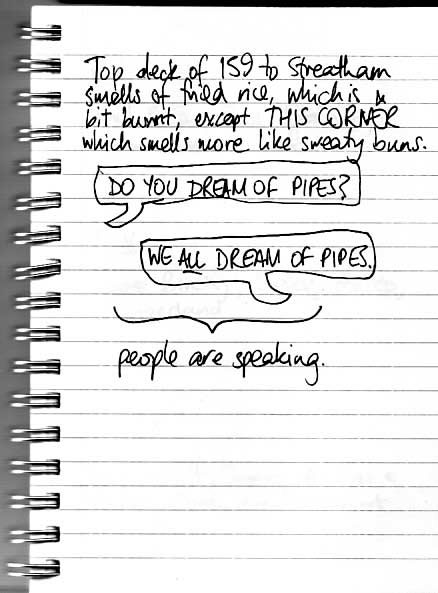 Top deck of 159 to Streatham
smells of fried rice, which is a
bit burnt, except THIS CORNER
which smells more like sweaty buns.
DO YOU DREAM OF PIPES?
WE ALL DREAM OF PIPES.
people are speaking.